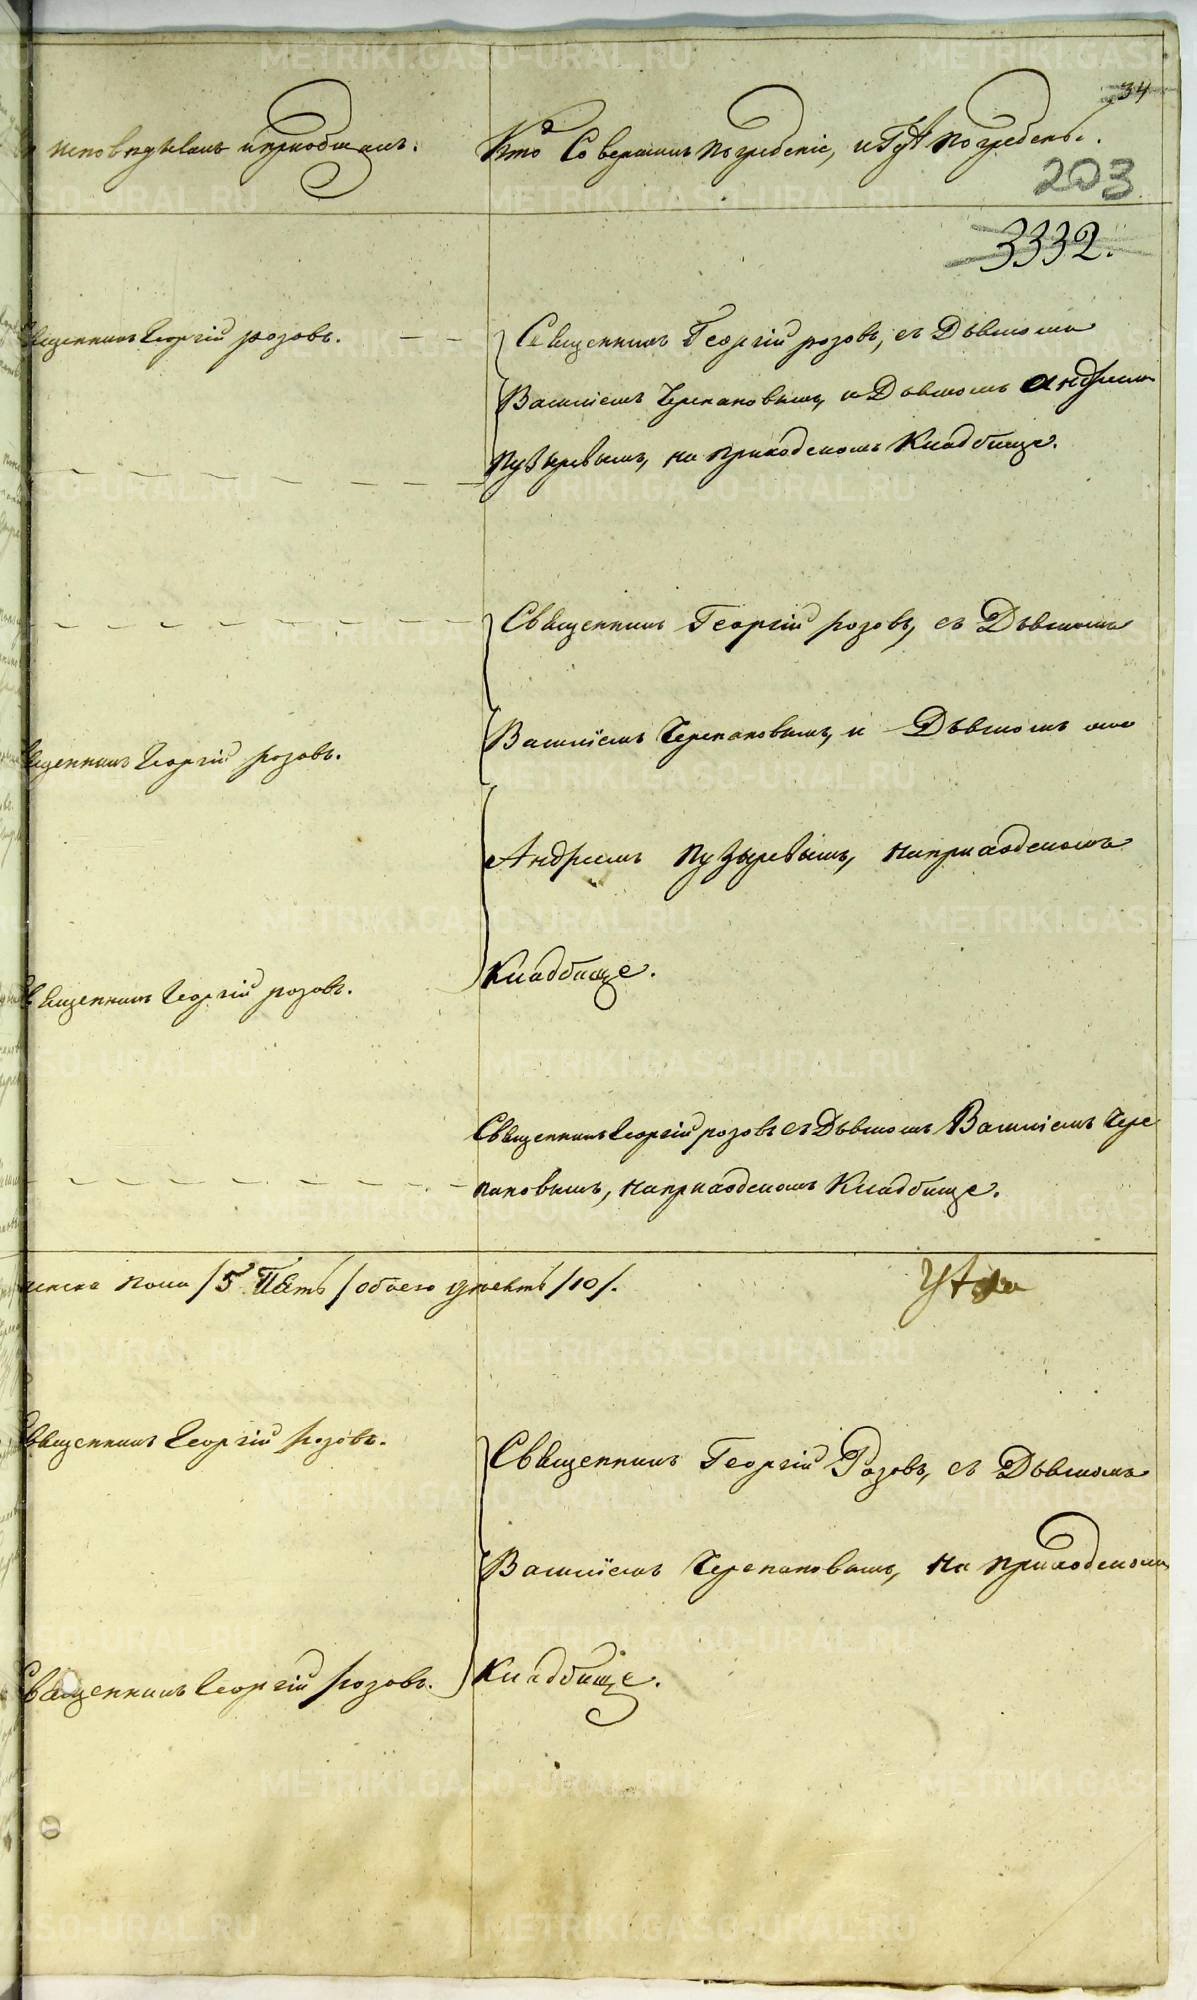 34
исповѣдывалъ и приобщалъ.
Кто Совершалъ погребеніе, и гдѣ погребены.
203
3332.
Священникъ Георгій розовъ.
Священникъ Георгій розовъ, съ Дьячкомъ
Василіемъ Черепановымъ, и Дьячкомъ Андреемъ
Пузыревымъ, на приходскомъ Кладбище.
Священникъ Георгій розовъ, съ Дьячкомъ
Священникъ Георгій розовъ.
Василіемъ Черепановымъ, и Дьячкомъ же
Андреемъ Пузыревымъ, на приходскомъ
Священникъ Георгій розовъ.
Кладбище.
Священникъ Георгій розовъ съ Дьячкомъ Василіемъ Чере
пановымъ, на приходскомъ Кладбище.
женска пола /5 Пять/ обоего /10/.
Священникъ Георгій розовъ.
Священникъ Георгій Розовъ, съ Дьячкомъ
Василіемъ Черепановымъ, на приходскомъ
Священникъ Георгій розовъ.
Кладбище.
METRIKI.GASO-URAL.RU